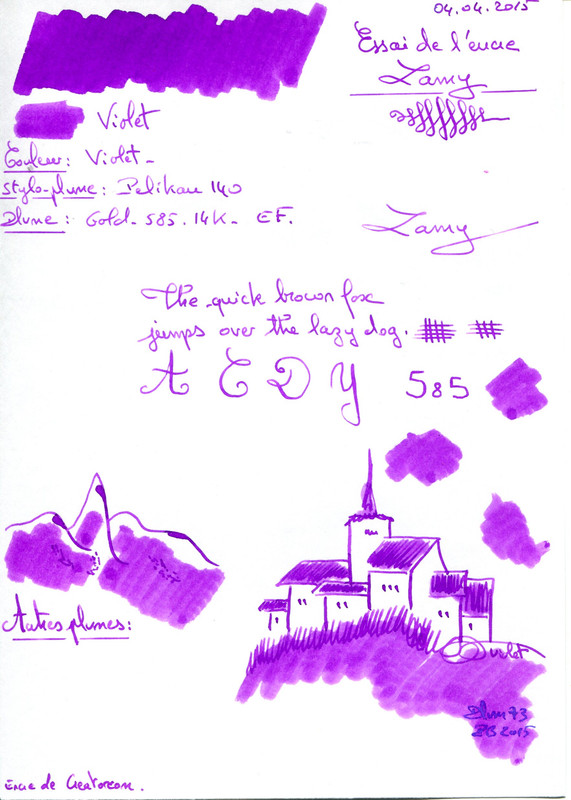 04.04.2015
Essai de l'encre
Lamy
Violet
Couleur: Violet-
Stylo-plume: Pelikan 140
Plume: Gold-585.14K- EF.
Lamy
The quick brown fox
jumps over the lazy dog.
A E D Y 585
Autres plumes:
violet
2015
Encre de